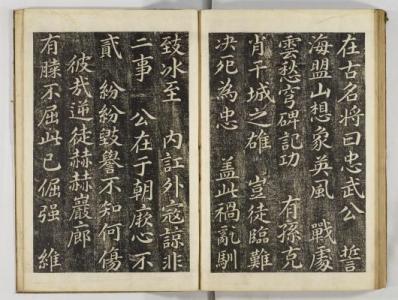 在古名將曰忠武公 誓
海盟山想象英風 戰處
雲愁穹碑記功 有孫克
肖干城之雄 豈徒臨難
决死為忠 蓋此禍亂馴
致冰至 內訌外寇諒非
二事 公在于朝厥心不
貳 紛紛毀譽不知何傷
彼哉逆徒赫赫巖廊
有膝不屈此已倔强 維